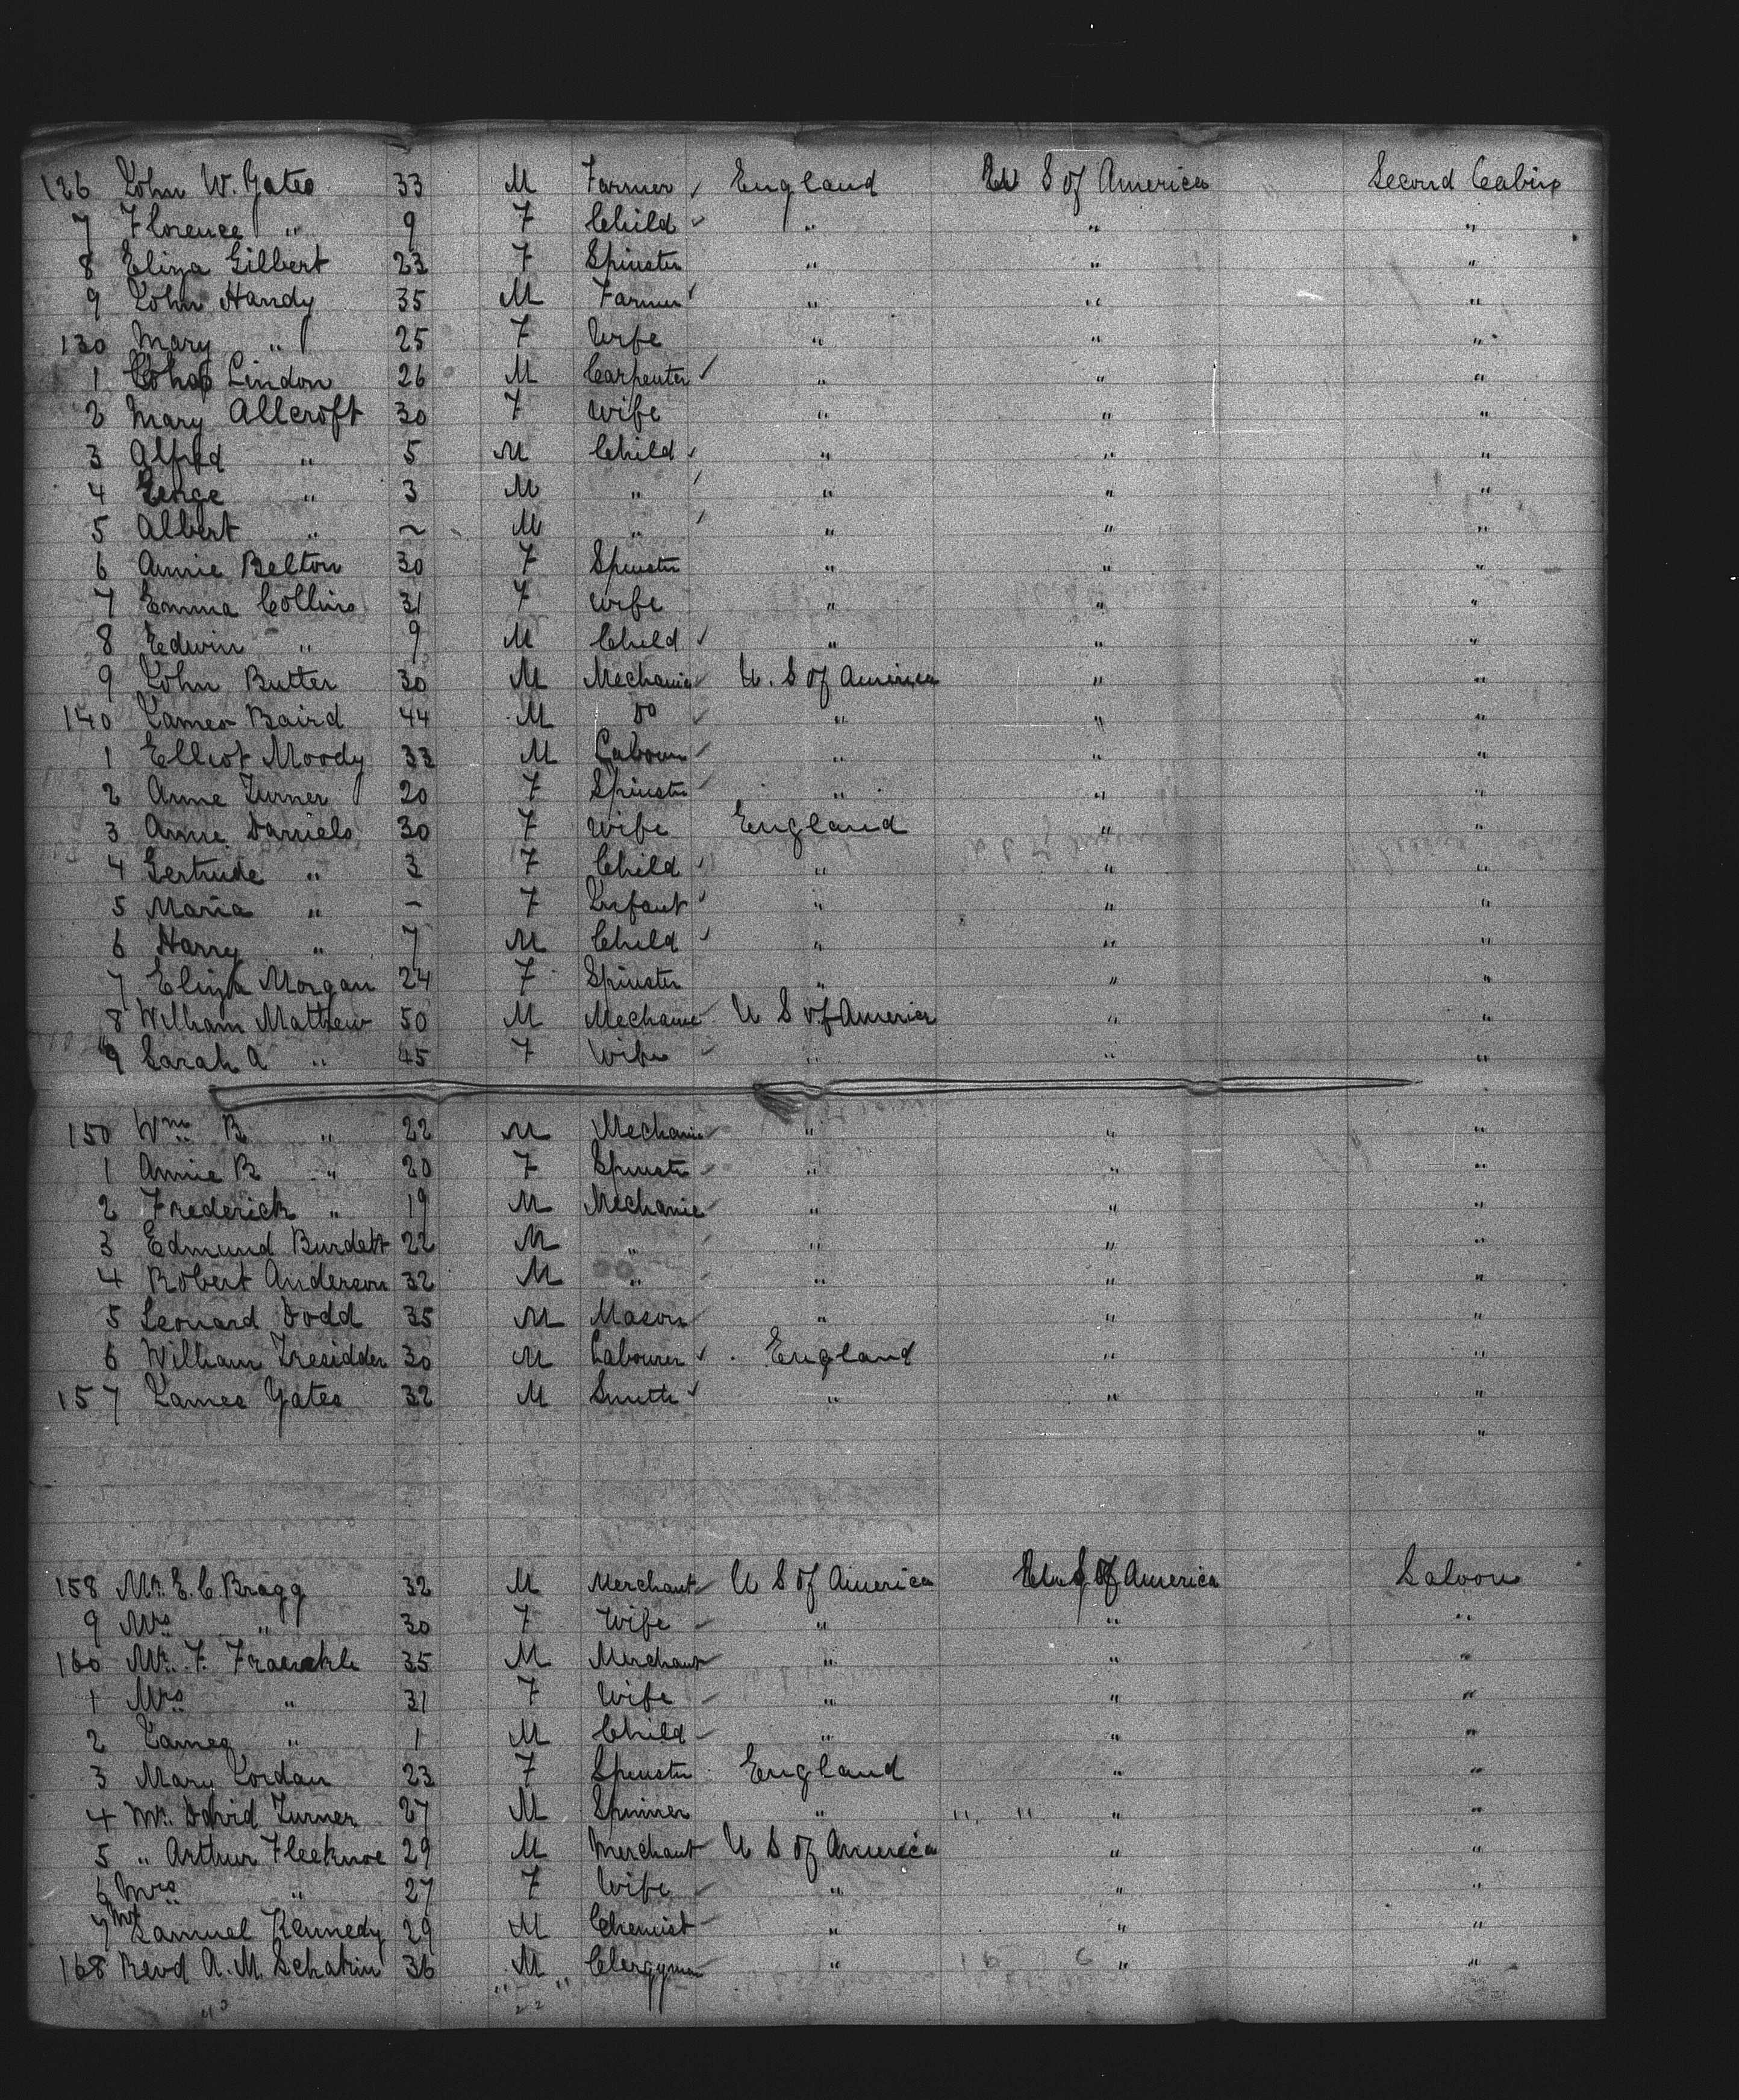 126 John W. Yates 33 M Farmer England U S of America Second Cabin
7 Florence " 9 F Child " " "
8 Eliza Gilbert 23 F Spinster " " "
9 John Handy 35 M Farmer " " "
130 Mary " 25 F Wife " " "
1 Lindon 26 M Carpenter " " "
2 Mary Allcroft 30 F Wife " " "
3 Alfred " 5 M Child " " "
4 George " 3 M " " " "
5 Albert " ~ M " " " "
6 Annie Belton 30 F Spinster " " "
7 Emma Collins 31 F Wife " " "
8 Edwin " 9 M Child " " "
9 John Butter 30 M Mechanic U. S of America " "
140 James Baird 44 M Do " " "
1 Elliot Moody 33 M Labourer " " "
2 Anne Turner 20 F Spinster " " "
3 Annie Daniels 30 F Wife England " "
4 Gertrude " 3 F Child " " "
5 Maria " - F Infant " " "
6 Harry " 7 M Child " " "
7 Eliza Morgan 24 F Spinster " " "
8 William Matthew 50 M Mechanic U S of America " "
9 Sarah A " 45 F Wife " " "
150 Wm B " 22 M Mechanic " " "
1 Annie B " 20 F Spinster " " "
2 Frederick " 19 M Mechanic " " "
3 Edmund Burdett 22 M " " " "
4 Robert Anderson 32 M " " " "
5 Leonard Dodd 35 M Mason " " "
6 William Tresidder 30 M Labourer England " "
157 James Yates 32 M Smith " " "
"
158 Mr. E. C. Bragg 32 M Merchant U S of America U S of America Saloon
9 Mrs " 30 F Wife " " "
160 Mr. F. 35 M Merchant " " "
1 Mrs " 31 F Wife " " "
2 James " 1 M Child " " "
3 Mary Jordan 23 F Spinster England " "
4 Mr. David Turner 27 M Spinner " " " " "
5 " Arthur Flecknoe 29 M Merchant U S of America " "
6 Mrs " 27 F Wife " " "
7 Mr Samuel Kennedy 29 M Chemist " " "
168 Revd A. M. 36 M Clergyman " " "